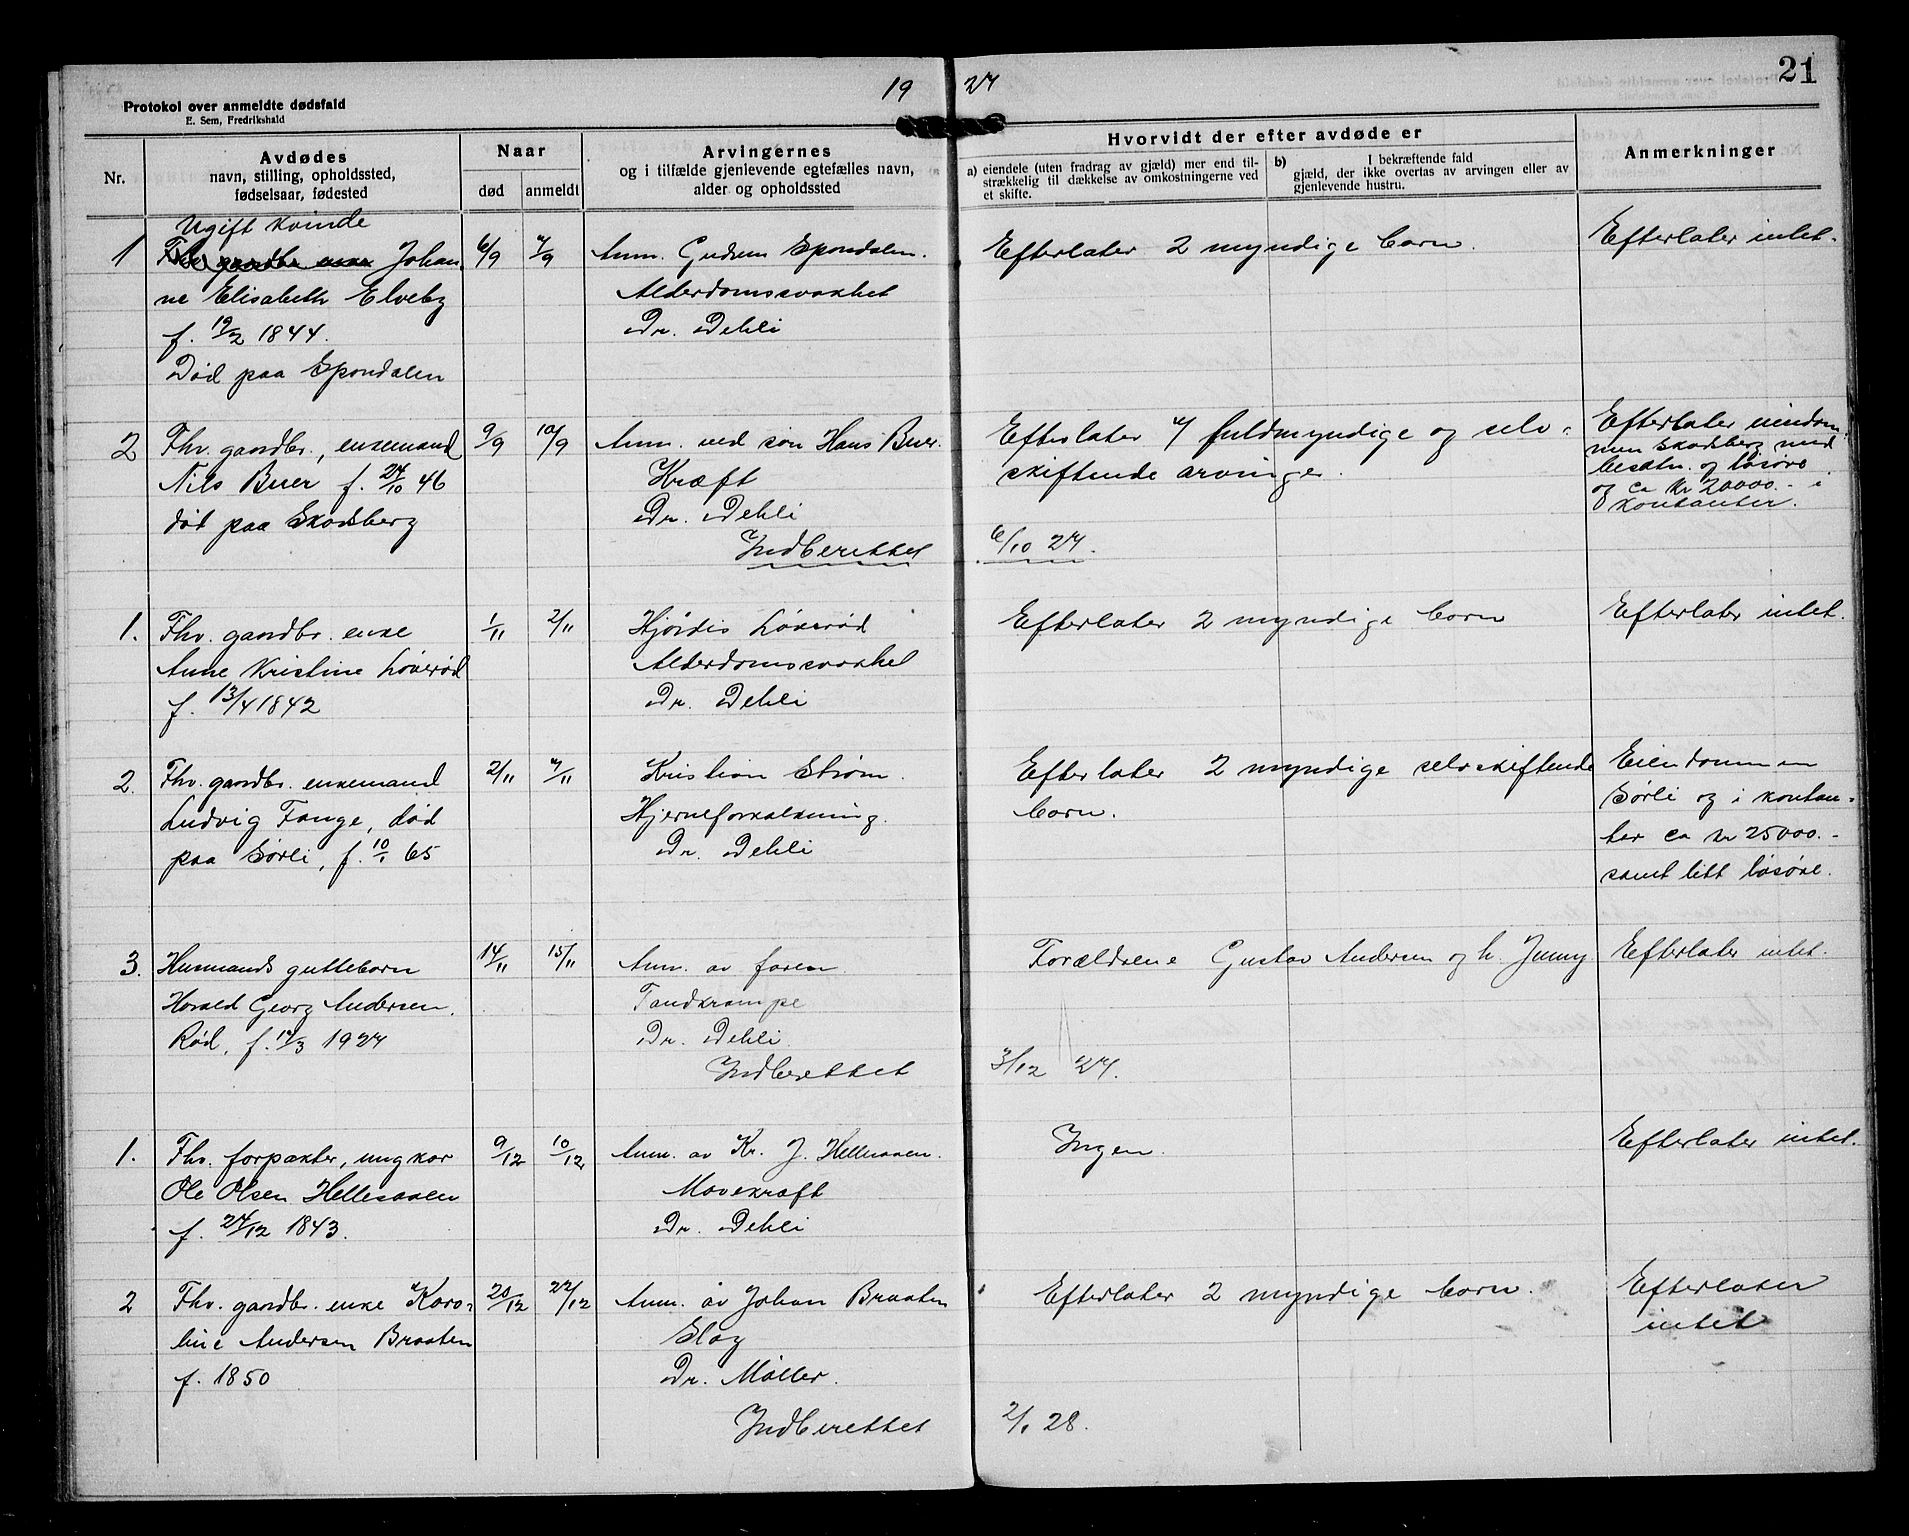 19 27
21
Protokol over anmeldte dødsfald
E. Sem, Fredrikshald
Nr.
Avdødes
navn, stilling, opholdssted,
fødselsaar, fødested
Naar
død
anmeldt
Arvingernes
og i tilfælde gjenlevende egtefælles navn,
alder og opholdssted
Hvorvidt der efter avdøde er
a) eiendele (uten fradrag av gjæld) mer end til-
strækkelig til dækkelse av omkostningerne ved
et skifte.
b) I bekræftende fald
gjæld, der ikke overtas av arvingen eller av
gjenlevende hustru.
Anmerkninger
Ugift kvinde
1 Fhv. gaardbr. enke Johan
ne Elisabeth Elveby
f. 19/2 1844.
Død paa Spondalen
6/9
7/9
Anm. Gudrun Spondalen.
Alderdomssvakhet
Dr. Dehli
Efterlater 2 myndige born.
Efterlater intet.
2 Fhv. gaardbr., enkemand
Nils Buer f. 27/10 46
død paa Skodsberg
9/9
10/9
Anm. ved søn Hans Buer.
Kræft
Dr. Dehli
Indberettet
Efterlater 7 fuldmyndige og selv-
skiftende arvinger.
6/10 27.
Efterlater eiendom
men Skodsberg med
besætn. og løsøre
og ca kr 20000.- i
kontanter.
1. Fhv. gaardbr. enke
Anne Kristine Løkerød
f. 13/4 1842
1/11
2/11
Hjørdis Løkerød
Alderdomssvakhet
Dr. Dehli
Efterlater 2 myndige born
Efterlater intet.
2. Fhv. gaardbr. enkemand
Ludvig Tange, død
paa Sørli, f. 10/1 65
2/11
7/11
Kristian Strøm.
Hjerneforkalkning.
Dr. Dehli
Efterlater 2 myndige selvskiftende
born.
Eiendommen
Sørli og i kontan-
ter ca kr 25000.-
samt litt løsøre.
3. Husmands guttebarn
Harald Georg Andersen.
Rød, f. 17/3 1927
14/11
15/11
Anm. av faren
Tandkrampe
Dr. Dehli
Indberettet
Forældrene Gustav Andersen og h. Jenny
3/12 27.
Efterlater intet.
1. Fhv. forpakter, ungkar
Ole Olsen Hellesaaen
f. 27/12 1843.
9/12
10/12
Anm. av Kr. J. Hellesaaen.
Mavekræft
Dr. Dehli
Ingen.
Efterlater intet.
2 Fhv. gaardbr. enke Karo-
line Andersen Braaten
f. 1850
20/12
22/12
Anm. av Johan Braaten
Slag
Dr. Møller.
Indberettet
Efterlater 2 myndige born.
2/1 28.
Efterlater
intet